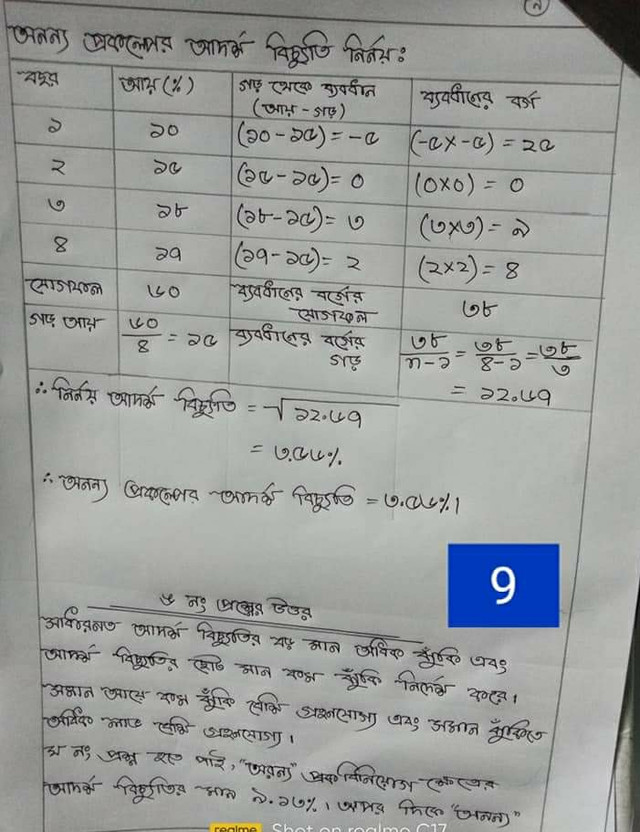 অনন্য প্রকল্পের আদর্শ বিচ্যুতি নির্ণয়ঃ
বছর আয় (%) গড় থেকে ব্যবধান (আয় - গড়) ব্যবধানের বর্গ
১ ১০ (১০ - ১৫) = -৫ (-৫ x -৫) = ২৫
২ ১৫ (১৫ - ১৫) = ০ (০x০) = ০
৩ ১৮ (১৮ - ১৫) = ৩ (৩x৩) = ৯
৪ ১৭ (১৭ - ১৫) = ২ (২x২) = ৪
যোগফল ৬০ ব্যবধানের বর্গের যোগফল ৩৮
গড় আয় ৬০/৪ = ১৫ ব্যবধানের বর্গের গড় ৩৮/n-১ = ৩৮/৪-১ = ৩৮/৩
= ১২.৬৭
∴ নির্ণয় আদর্শ বিচ্যুতি = √১২.৬৭
= ৩.৫৬%
∴ অনন্য প্রকল্পের আদর্শ বিচ্যুতি = ৩.৫৬%।
9
নং প্রশ্নের উত্তর
আদর্শ বিচ্যুতির বড় মান অধিক ঝুঁকি এবং
আদর্শ বিচ্যুতির ছোট মান কম ঝুঁকি নির্দেশ করে।
সমান আয়ে কম ঝুঁকি বেশি গ্রহণযোগ্য এবং সমান ঝুঁকিতে
অধিক লাভ বেশি গ্রহণযোগ্য।
নং প্রশ্ন হতে পাই, ক্ষেত্রে
আদর্শ বিচ্যুতির মান ৯.১৭%। অপর দিকে "অনন্য"
realme Shot on realme C17